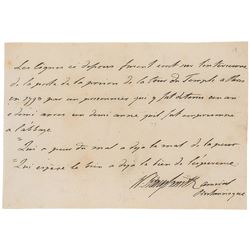 Les lignes ci dessous furent écrit sur l'intérieur
de la porte de la prison de la tour du Temple à Paris
en 179 par un prisonnier qui y fut détenu un an
& demi avoir un demi année fut emprisonné
à l'abbaye
"Qui a peur du mal a déjà le mal de la peur
"Qui espère le bien a déjà le bien de l'espérance
W. Sidney Smith amiral
Britannique